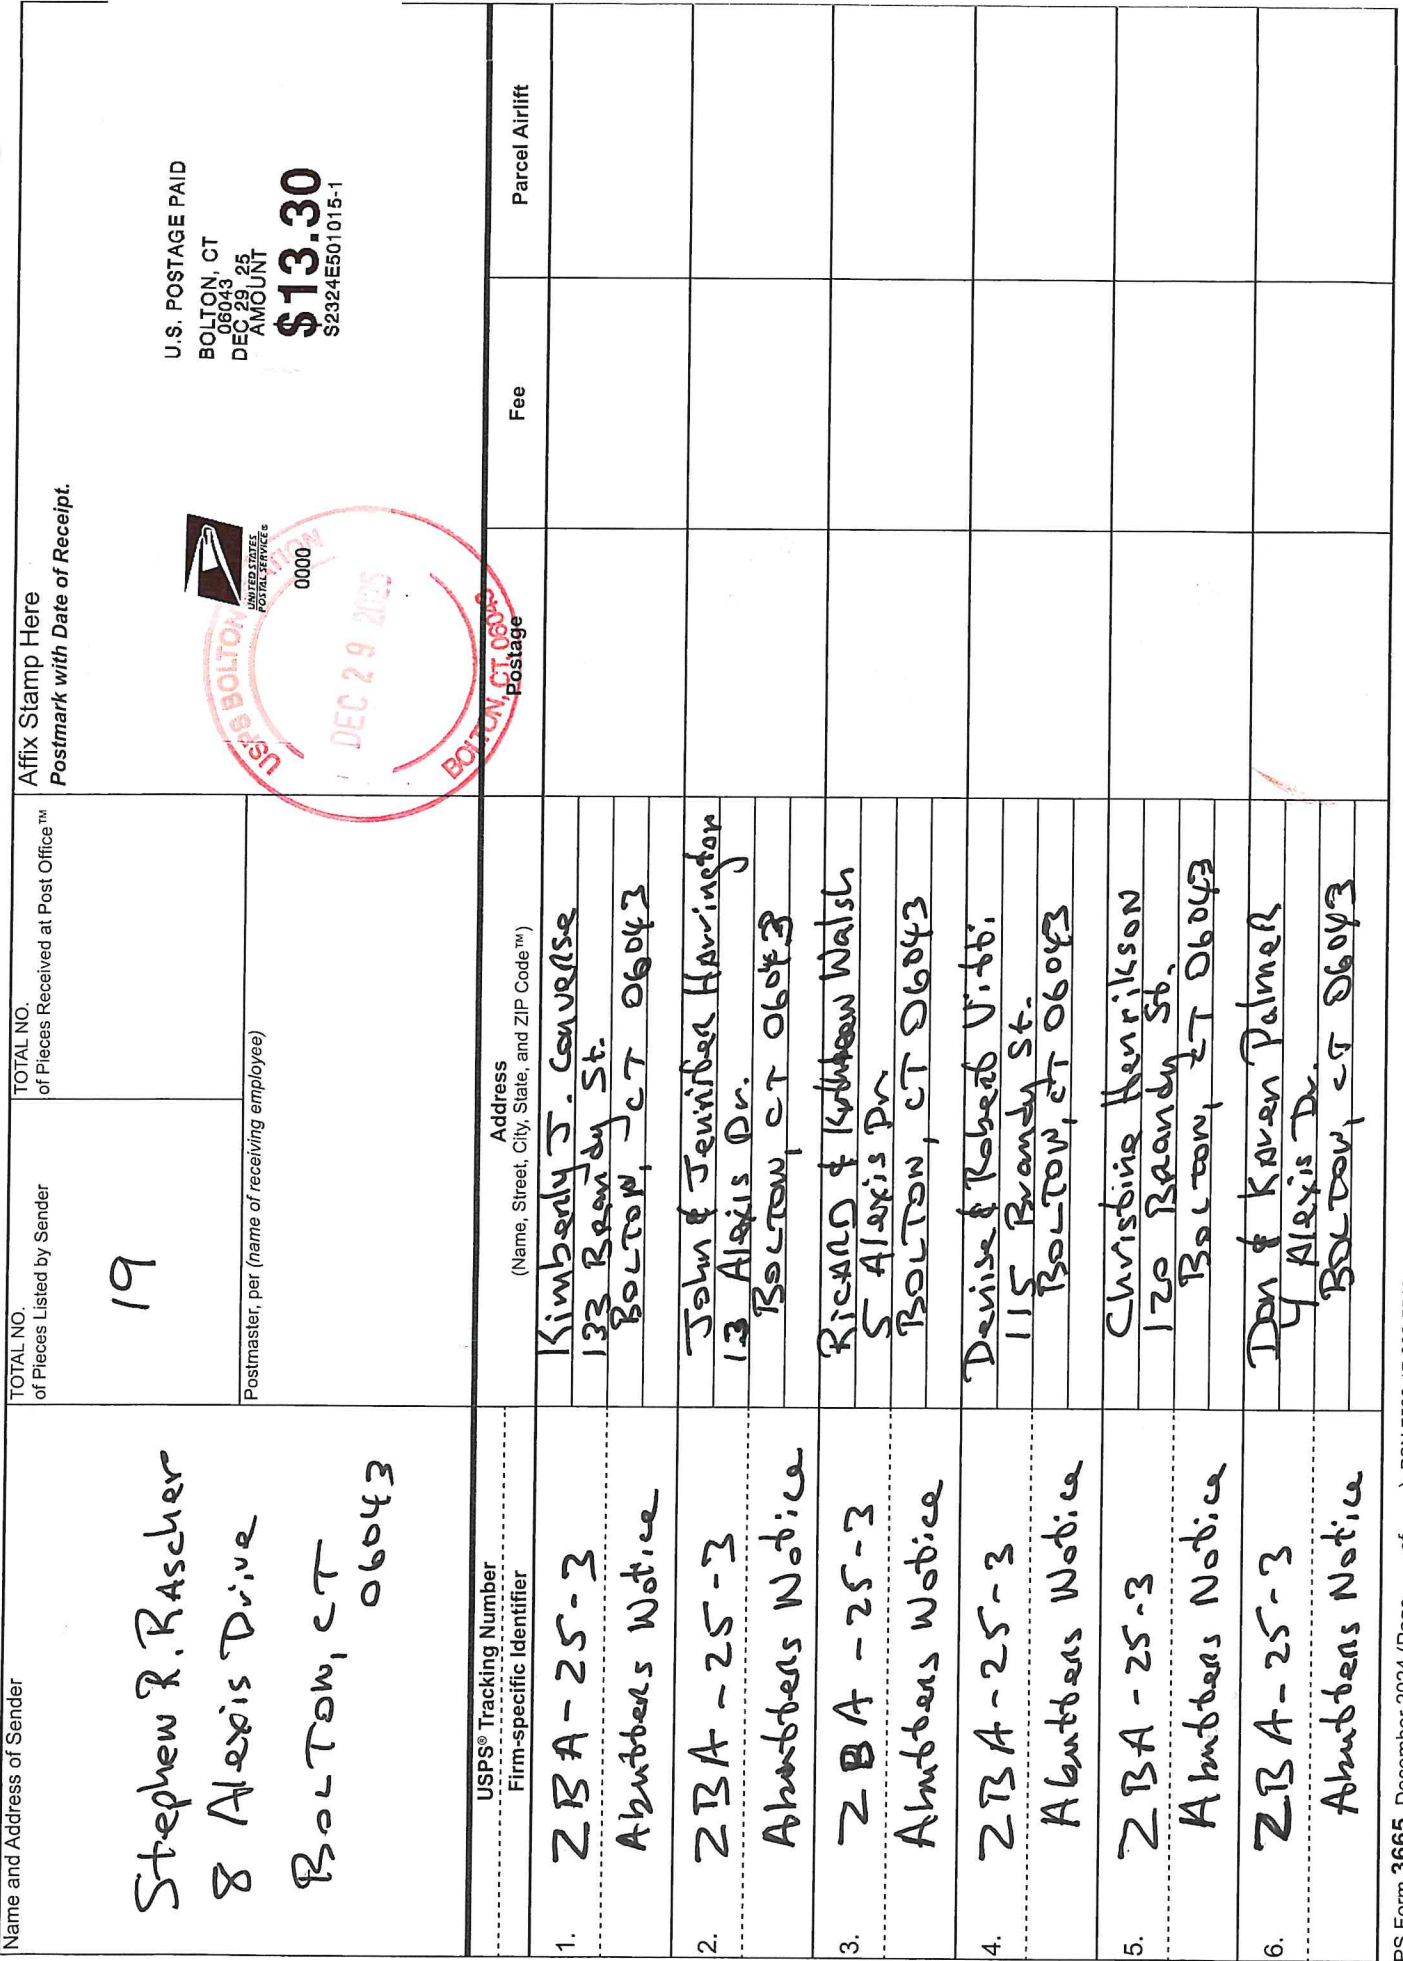 Name and Address of Sender
Stephen R. RAscher
8 Alexis Drive
BOLTON, CT
06043
TOTAL NO.
of Pieces Listed by Sender
19
TOTAL NO.
of Pieces Received at Post Office™
Postmaster, per (name of receiving employee)
Affix Stamp Here
Postmark with Date of Receipt.
UNITED STATES
POSTAL SERVICE®
0000
U.S. POSTAGE PAID
BOLTON, CT
06043
DEC 29, 25
AMOUNT
$13.30
S2324E501015-1
USPS BOLTON
DEC 29 2025
BOLTON, CT 06043
USPS® Tracking Number
Firm-specific Identifier
Address
(Name, Street, City, State, and ZIP Code™)
Postage
Fee
Parcel Airlift
1.
ZBA-25-3
Abutters Notice
Kimberly J. Converse
133 Brandy St.
BOLTON, CT 06043
2.
ZBA-25-3
Abutters Notice
John & Jennifer Harrington
13 Alexis Dr.
BOLTON, CT 06043
3.
ZBA-25-3
Abutters Notice
RicARD & Kathleen Walsh
5 Alexis Dr
BOLTON, CT 06043
4.
ZBA-25-3
Abutters Notice
Denise & Robert Vitti
115 Brandy St.
BOLTON, CT 06043
5.
ZBA-25-3
Abutters Notice
Christine Henrikson
120 Brandy St.
BOLTON, CT 06043
6.
ZBA-25-3
Abutters Notice
Don & Karen Palmer
4 Alexis Dr.
BOLTON, CT 06043
PS Form 3665, December 2024 (Page